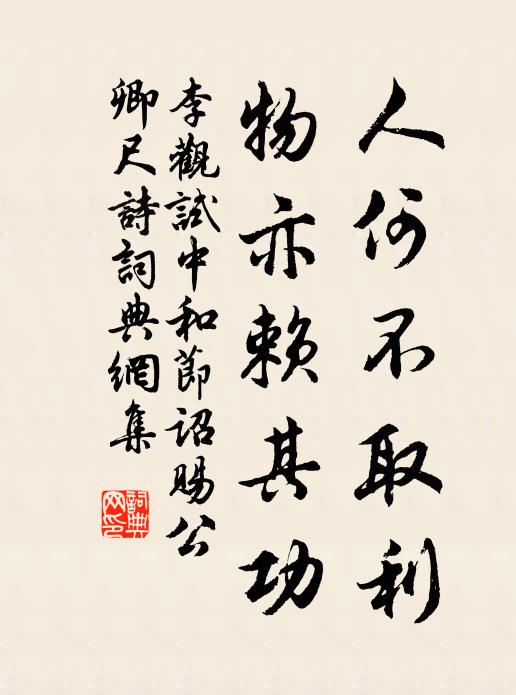 人何不取利
物亦賴其功
李觀試中和節詔賜公
卿尺詩詞典網集
詞典網印